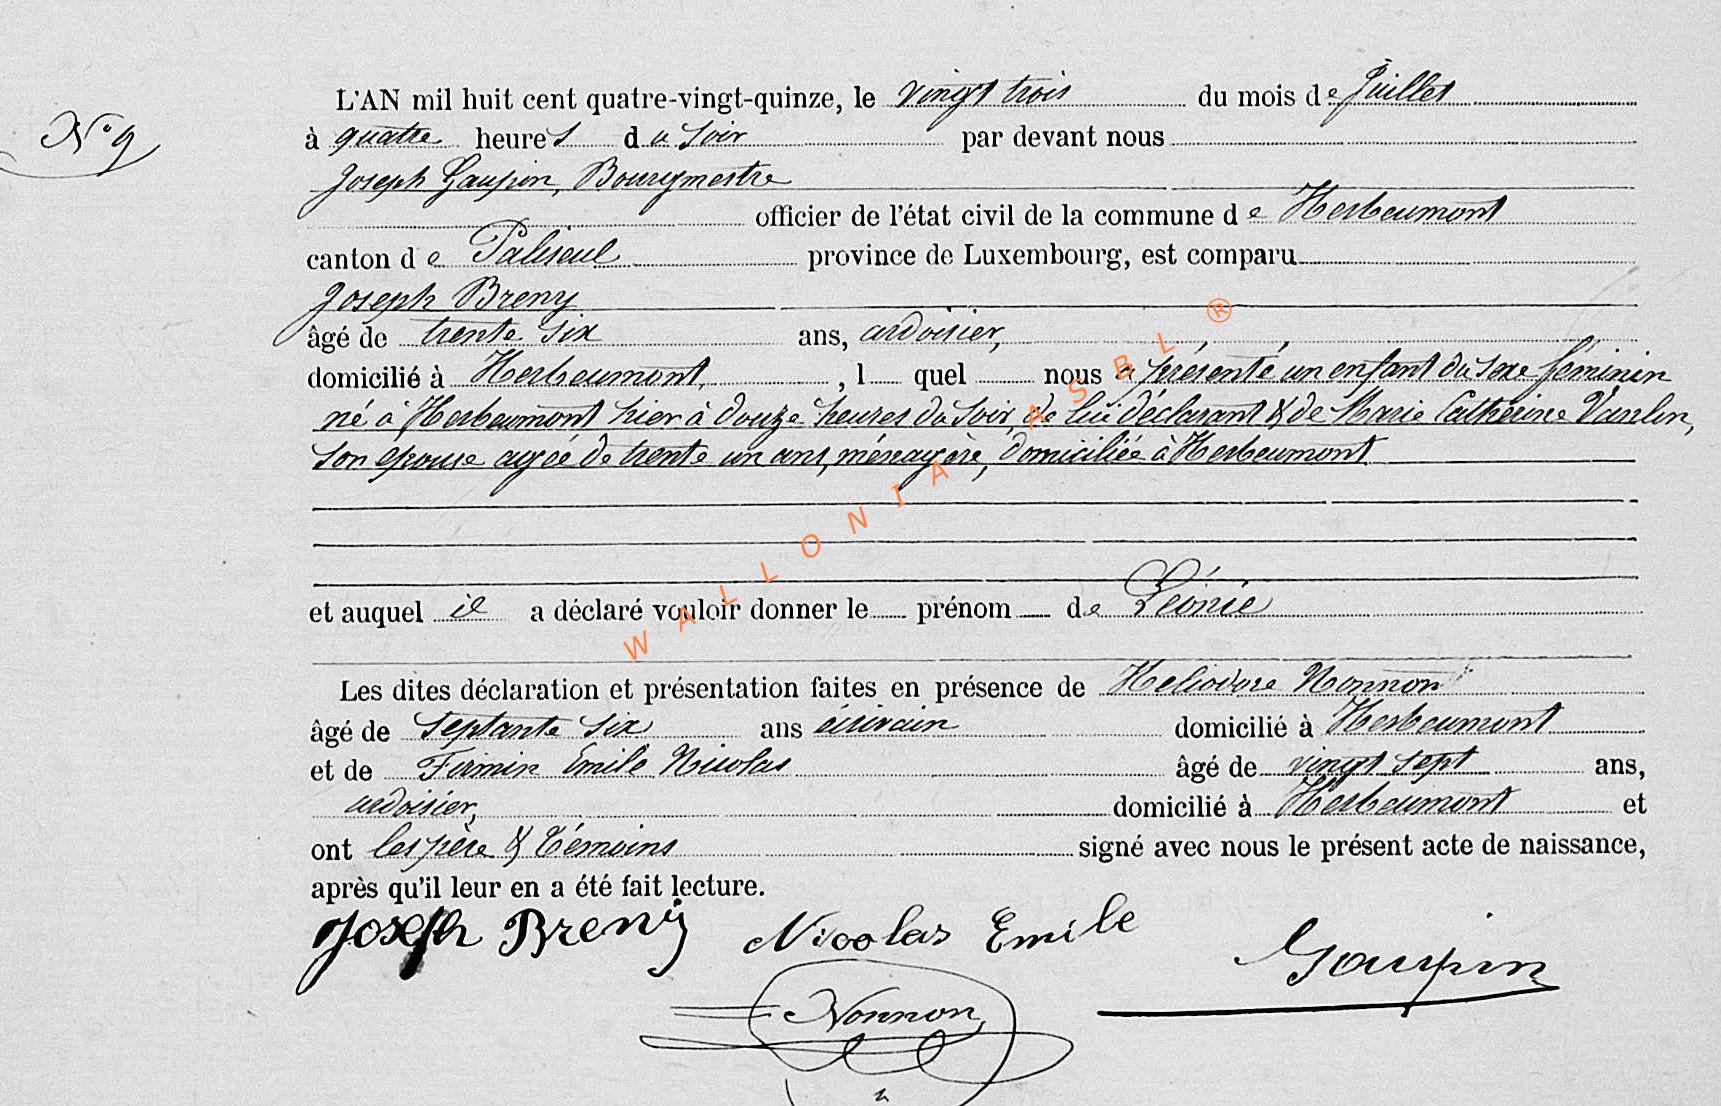 L'AN mil huit cent quatre-vingt-quinze, le vingt trois du mois de Juillet
N° 9
à quatre heures du soir par devant nous
Joseph Gaupin, Bourgmestre
officier de l'état civil de la commune de Herbeumont
canton de Paliseul province de Luxembourg, est comparu
Joseph Breny
âgé de trente six ans, ardoisier,
domicilié à Herbeumont, l quel nous a présenté un enfant du sexe féminin
né à Herbeumont hier à douze heures du soir, de lui déclarant & de Marie Catherine Vanlin,
son épouse agée de trente un ans, ménagère, domiciliée à Herbeumont
et auquel il a déclaré vouloir donner le prénom de Léonie
Les dites déclaration et présentation faites en présence de Heliodore Nonnon
âgé de septante six ans écrivain domicilié à Herbeumont
et de Firmin Emile Nicolas âgé de vingt sept ans,
ardoisier, domicilié à Herbeumont et
ont les père & témoins signé avec nous le présent acte de naissance,
après qu'il leur en a été fait lecture.
Joseph Breny Nicolas Emile Gaupin
Nonnon
WALLONIA ASBL ®